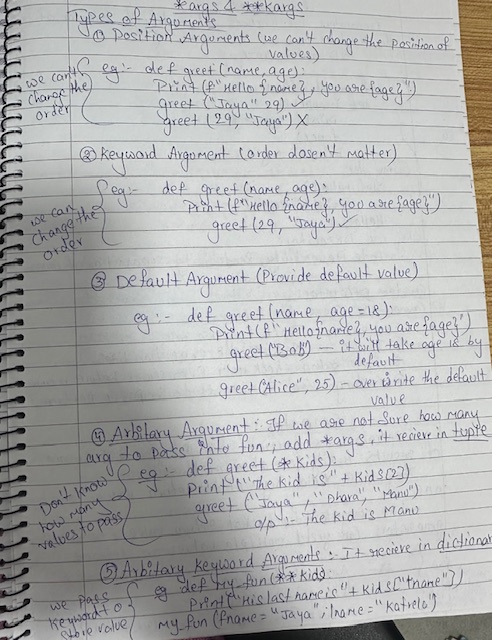 *args & **kargs
Types of Arguments
① Position Arguments (we can't change the position of
values)
we can't
change the
order
eg:- def greet (name, age):
Print (f"Hello {name}, you are {age}")
greet ("Jaya" 29) ✓
greet (29, "Jaya") X
② Keyword Argument (order dosen't matter)
we can
change the
order
eg:- def greet (name, age):
Print (f"Hello {name}, you are {age}")
greet (29, "Jaya") ✓
③ Default Argument (Provide default value)
eg:- def greet (name, age = 18):
Print (f"Hello {name}, you are {age}")
greet ("Bob") — it will take age 18 by
default
greet ("Alice", 25) - over write the default
value
④ Arbitary Argument :- If we are not sure how many
arg to pass into fun, add *args, it recieve in tuple
Don't know
how many
values to pass
eg :- def greet (*Kids):
Print ("The kid is" + Kids[2])
greet ("Jaya", "Dhara", "Manu")
o/p :- The Kid is Manu
⑤ Arbitary Keyword Arguments :- It recieve in dictionar
we pass
keyword to
store value
eg def my_fun (**kid):
Print ("His last name is" + Kids["fname"])
my_fun (fname = "Jaya", lname = "Katrela")